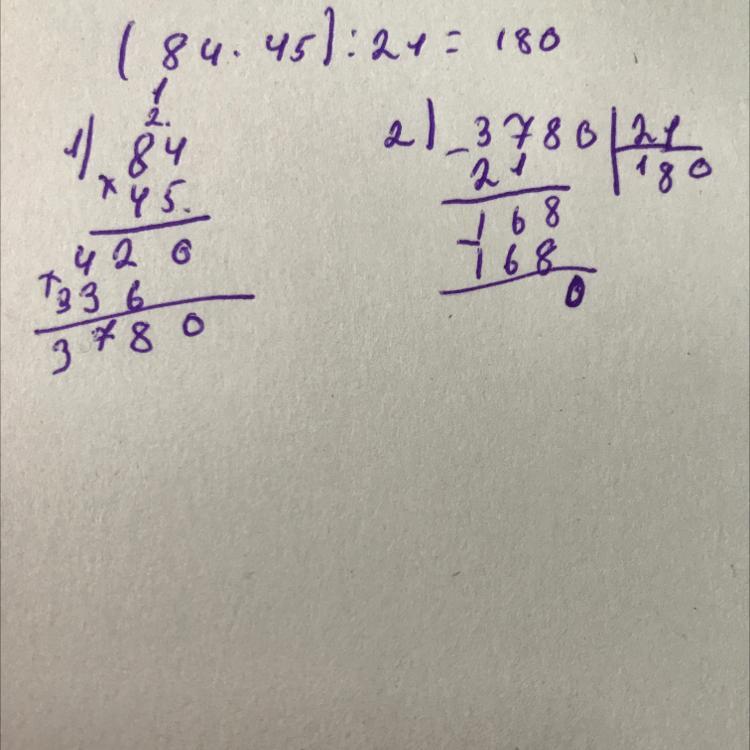 (84·45):21=180
1
2.
1) 84
×45.
420
+336
3780
2) -3780|21
21 180
-168
168
0